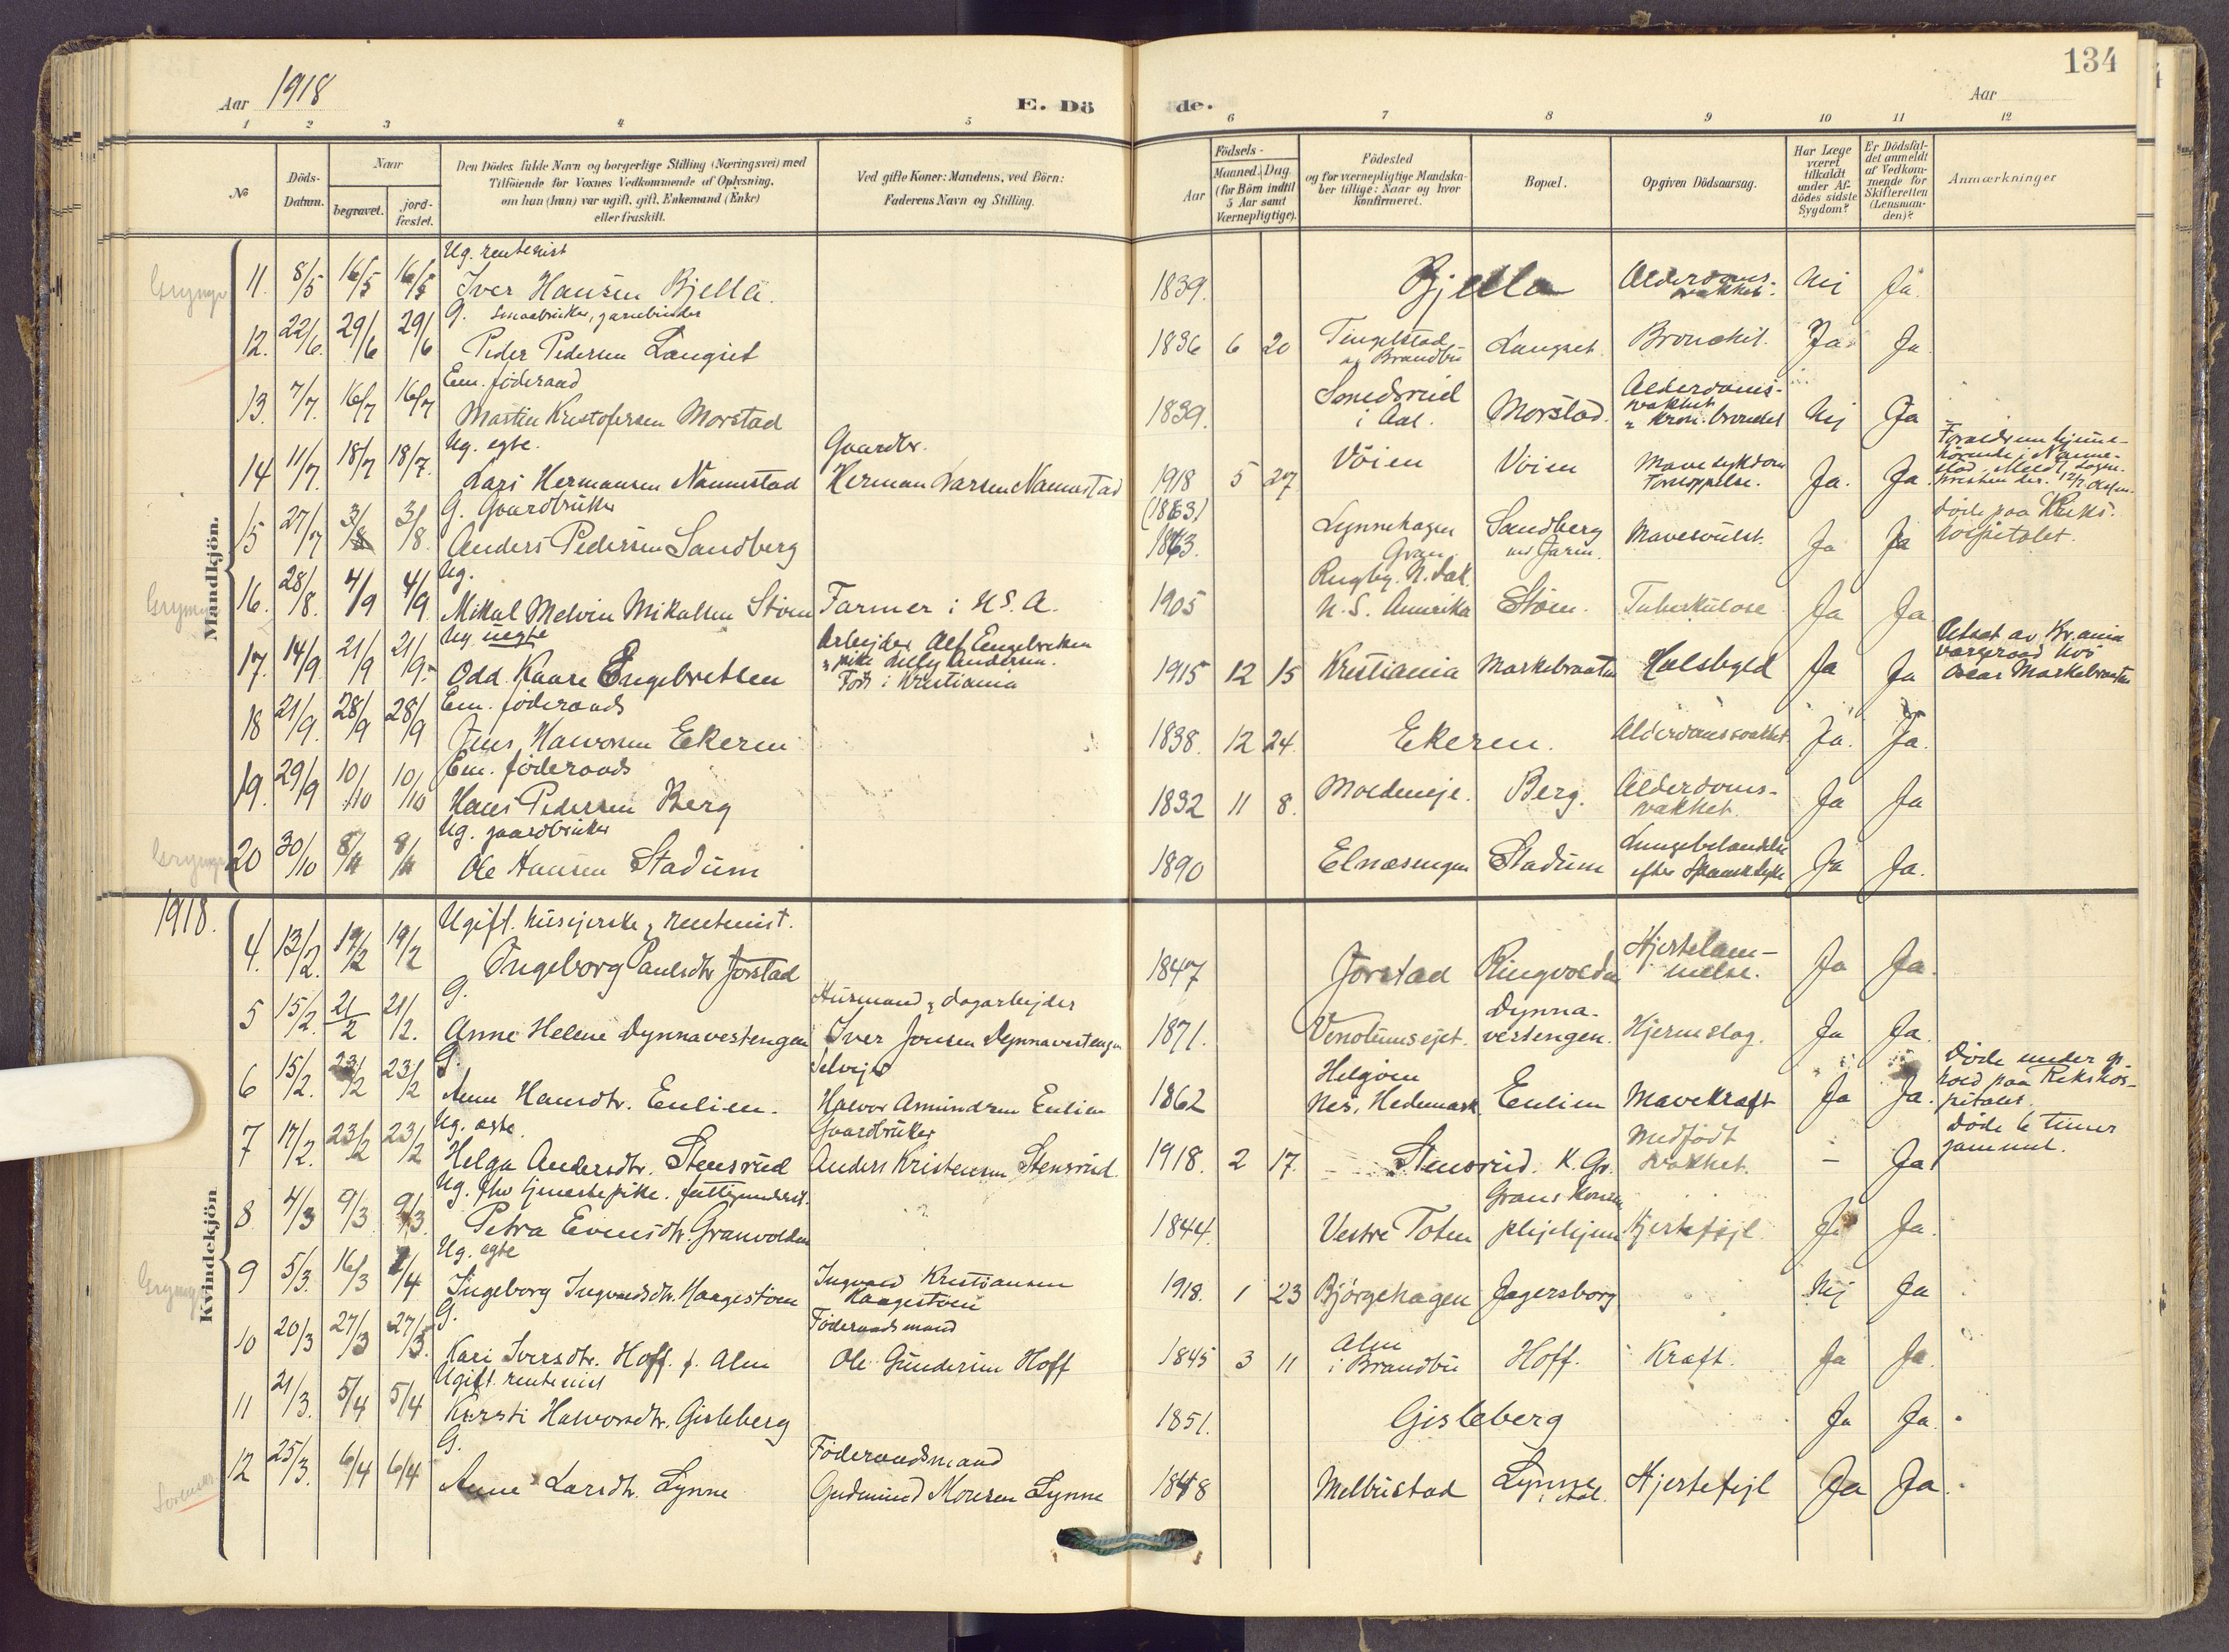 134
Aar 1918
E. Dö de.
Aar
1 2 3 4 5 6 7 8 9 10 11 12
No
Döds-Datum.
Naar
begravet.
jord-fæstet.
Den Dödes fulde Navn og borgerlige Stilling (Næringsvei) med
Tilföiende for Voxnes Vedkommende af Oplysning,
om han (hun) var ugift, gift, Enkemand (Enke)
eller fraskilt.
Ved gifte Koner: Mandens, ved Börn:
Faderens Navn og Stilling.
Födsels-
Aar
Maaned. Dag
(for Börn indtil
5 Aar samt
Værnepligtige).
Födested
og for værnepligtige Mandska-
ber tillige: Naar og hvor
konfirmeret.
Bopæl.
Opgiven Dödsaarsag.
Har Læge
været
tilkaldt
under Af-
dödes sidste
Sygdom?
Er Dödsfal-
det anmeldt
af Vedkom-
mende for
Skifteretten
(Lensman-
den)?
Anmærkninger
Mandkjön.
Ug. rentenist
11. 8/5 16/5 16/5 Iver Hansen Bjella. 1839. Bjella Alderdoms-svakhet. Nej Ja
G. Smaabruker, garnbinder
12. 22/6. 29/6 29/6 Peder Pedersen Langset 1836 6 20 Tingelstad Brandbu Langset. Bronchit. Ja Ja
Em. föderaad
13. 7/7. 16/7 16/7 Martin Kristofersen Morstad 1839. i Aal. Morstad. Alderdoms-svakhet kron. bronchit Nej Ja
Ug. egte. Gaardbr.
14 11/7. 18/7 18/7. Lars Hermansen Nammestad Herman Larsen Namastad 1918 5 27 Vöien Vöien Mavesykdom Forstoppelse. Ja. Ja
G. Gaardbruker (1863)
15 27/7 3/8 3/8. Anders Pedersen Sandberg 1863. Lynnehagen Gran. Sandberg ved Jaren. Mavesvulst. Ja Ja Döde paa Riks-hospitalet.
Ug.
16. 28/8. 4/9 4/9 Mikal Melvin Mikalsen Stöen Farmer i U.S.A. 1905 Rugby. N. Dak. U.S. Amerika Stöen. Tuberkulose Ja Ja
Ug. uegte Arbejder Alf Engebretsen
17. 14/9 21/9 21/9. Odd Kaare Engebretsen Född i Kristiania 1915 12 15 Kristiania Markebraaten Halsbyld Ja Ja Utsat av Kr.ania vergeraad hos Oscar Markebraaten
Em. föderaads
18 21/9. 28/9 28/9 Jens Halvorsen Ekeren 1838. 12 24. Ekeren. Alderdomssvakhet Ja. Ja.
Em. föderaads
19. 29/9 10/10 10/10 Hans Pedersen Berg 1832 11 8. Moldeneje. Berg. Alderdoms-svakhet. Ja Ja
Ug. gaardbruker
20 30/10 8/11 8/11 Ole Hansen Stadum 1890 Elnæsengen Stadum Lungebetændelse efter Spansk syke Ja Ja.
1918.
Kvindekjön
Ugift. husejerske & rentenist.
4. 13/2. 19/2 19/2 Ingeborg Paulsdtr Jorstad 1847 Jorstad Ringvolden Hjertelam-melse. Ja Ja.
G. Husmand & dagarbejder
5 15/2. 21/2 21/2. Anne Helene Dynnavestengen Iver Jonsen Dynnavestengen 1871. Dynna-vestengen. Hjerneslag. Ja Ja.
G. Selvejer
6 15/2. 23/2 23/2 Anne Hansdtr. Enlien. Halvor Amundsen Enlien 1862 Helgöen Nes, Hedemark Enlien Mavekraft Ja Ja. Döde under op-hold paa Rikshos-pitalet.
Ug. egte. Gaardbruker
7 17/2. 23/2 23/2 Helga Andersdtr. Stensrud Anders Kristensen Stensrud. 1918. 2 17. Stensrud. K. Gr. Medfödt svakhet. – Ja Döde 6 timer gammel.
Ug. fhv tjenestepike. fattigunderst.
8 4/3 9/3 9/3. Petra Evensdtr. Granvolden 1844. Vestre Toten Grans Komm. plejehjem Hjertefejl. Ja Ja.
Ug. egte
9 5/3. 16/3 1/4 Ingeborg Ingvaldsdtr. Haagestöen Ingvald Kristiansen Haagestöen 1918. 1 23 Björgehagen Jagersborg Nej Ja
G. Föderaadsmand
10 20/3 27/3 27/3. Kari Iversdtr. Hoff f. Alm Ole Gundersen Hoff 1845 3 11 Alm i Brandbu Hoff. Kraft. Ja Ja.
Ugift. rentenist
11 21/3. 5/4 5/4 Kirsti Halvorsdtr. Gisleberg 1851. Gisleberg Ja Ja.
G. Föderaadsmand
12 25/3. 6/4 6/4 Anne Larsdtr. Lynne Gudmund Monsen Lynne 1848 Melbustad Lynne i Aal. Hjertefejl Ja Ja.